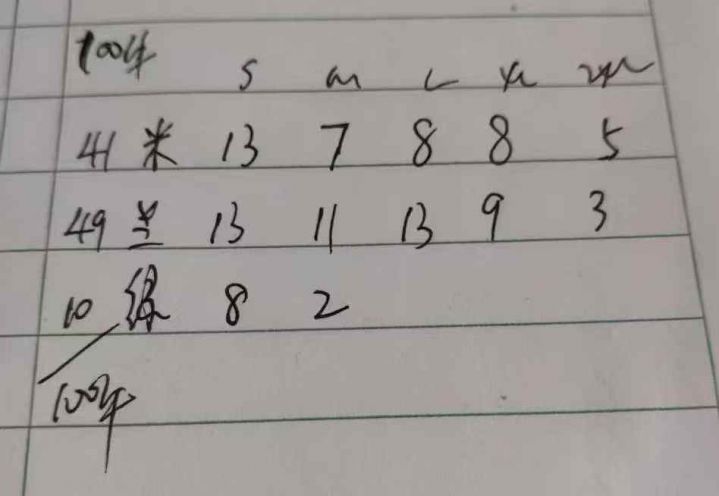 100件
S M L XL 2XL
41 米 13 7 8 8 5
49 兰 13 11 13 9 3
10 绿 8 2
100件